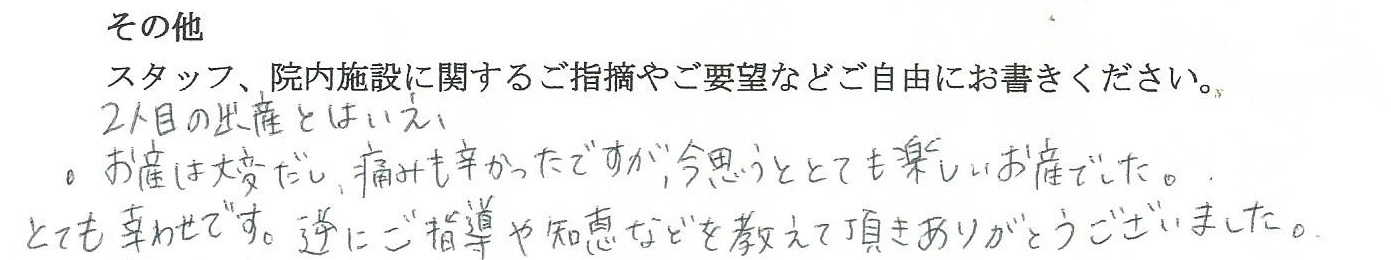 その他
スタッフ、院内施設に関するご指摘やご要望などご自由にお書きください。
2人目の出産とはいえ、
。お産は大変だし、痛みも辛かったですが、今思うととても楽しいお産でした。
とても幸わせです。逆にご指導や知恵などを教えて頂きありがとうございました。